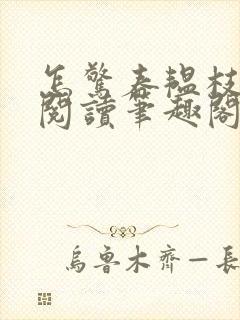 怎驚春韞枝
閱讀筆趣閣
烏魯木齊—長